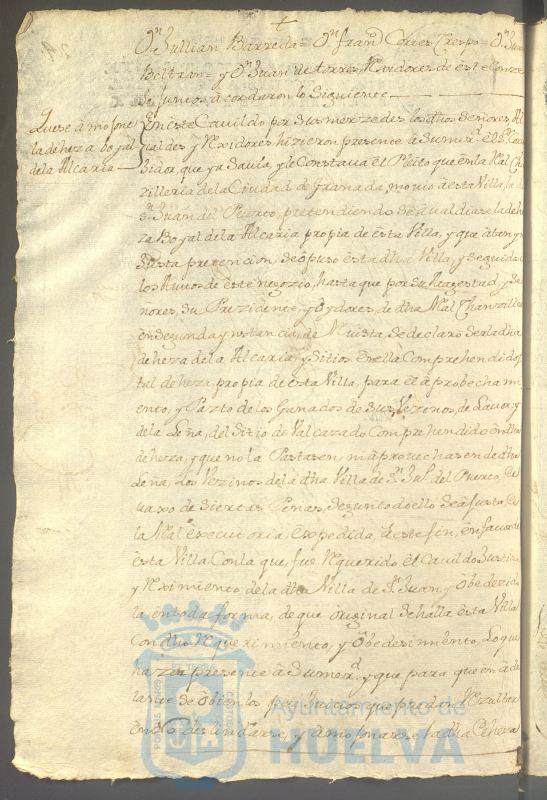 +
Dn Jullian Barreda = Dn Francᵒ Cortes Crespo = Dn Juan
Beltran = y Dn Juan de torres Rexidores de este Conzexo
Juntos acordaron lo Siguiente
Que se amojone
la deheza boyal
de la Alcaria
En este Cavildo por Sus merzedes los dhos Señores Al
caldes y Rexidores hizieron presente a Su merᵈ el Sᵒʳ Corre
xidor, que ya Savia y le Constava el Pleito que en la Rˡ Chan
zilleria de la Ciudad de Granada movio a esta Villa, la de
Sn Juan del Puerto, pretendiendo Se la dehe
za Boyal de la Alcaria propia de esta Villa, y que a tan yn
justa pretencion, se opuso esta dha Villa, y Seguidos
los Autos de este negozio, hasta que por Su Magestad y Se
ñores, Su Prezidente y Oydores de dha Real Chanzilleria
en Segunda ynstancia, de Revista, Se declaro Ser la dha
deheza de la Alcaria, y Sitios en ella Comprehendidos
tal deheza propia de esta Villa, para el aprobechami
ento, y Pazto de los Ganados de Sus Vezinos, de Lavor, y
de la Leña, del Sitio de Valcazado Comprehendido en dha
deheza, y que no la Pastasen, ni aprovechasen de dha
Leña, los Vezinos de la dha Villa de Sn Juˡ del Puerto,
vaxo de Siertas Penas, Segun todo ello
la Real executoria, expedida, a este fin, en favor de
esta Villa Con la que, fue Requerido el Cavildo Justicia
y Reximiento de la dha Villa de Sn Juan, y Obedezida
la en toda forma, de que original Se halla esta Villa
Con dho Requerimiento, y Obedesimiento, Lo que
hazen presente a Su merᵈ y que para que en ade
lante Se obien los perjuicios, que puedan Rezultar
en no deslindarse, y Amojonarse la dha Deheza
Ayuntamiento de
HUELVA